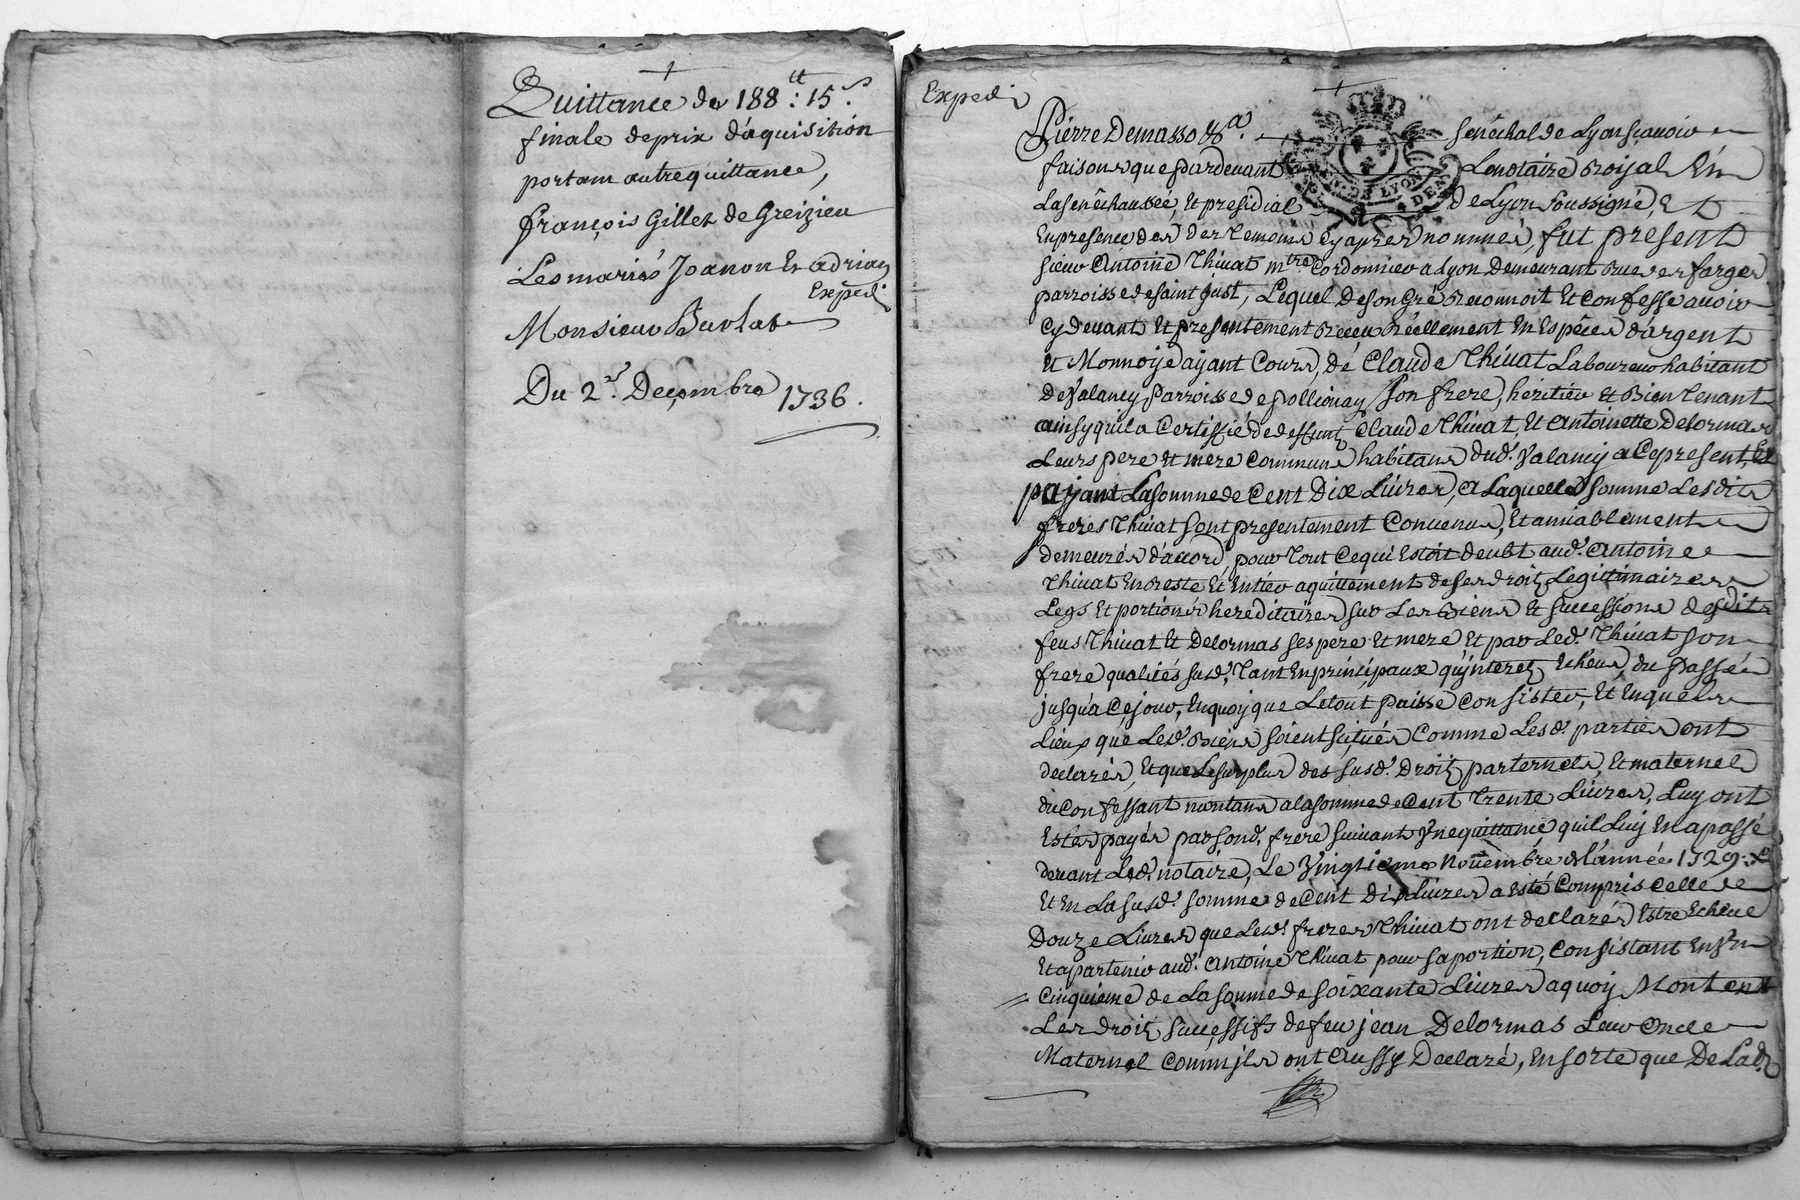 Quittance de 188 tt : 15 s.
finale de prix d'aquisition
portam autre quittance,
françois Gillet de Greizieu
Les mariés Joanon Et adrian
Expedi
Monsieur Burlat
Du 2e. Decembre 1736.
Expedi
Pierre Demasso &a. senéchal de Lyon sçauoir
faisons que pardeuant Le notaire Roijal En
La senéchaussée, Et presidial de Lyon soussigné, Et
En presence des des temoins cy apres nommés, fut present
sieur Antoine Thiuat mtre Cordonnier a Lyon Demeurant Rue des farges
parroisse de saint Just, Lequel De son Gré Reconnoit Et Confesse auoir
Cy deuant Et presentement Receu Réellement En Espéces d'argent
Et Monnoye ayant Cours, de Claude Thiuat Laboureur habitant
de Valancy Parroisse de Pollionay son frere, héritier Et Bien tenant
ainsy quil a Certiffié de deffunt Claude Thiuat, Et Antoinette Delormas
Leurs pere Et mere Communs habitans dud. Valancy a Ce present, Et
payant La somme de Cent Dix Liures, a Laquelle somme Lesdits
freres Thiuat sont presentement Conuenus, Et amiablement
demeurés d'accord, pour tout Ce qui Estoit deubt aud. Antoine
Thiuat En reste Et Entier aquittement de ses droits Legittimaires
Legs Et portions hereditaires sur Les Biens Et successions desdits
feus Thiuat Et Delormas ses pere Et mere Et par Led. Thiuat son
frere qualités susd. tant En principaux qu'interets Echeus du passé
jusqu'a Ce jour, En quoy que Le tout puisse Consister, Et En quels
Lieux que Lesd. Biens soient scitués Comme Lesd. parties ont
declarés, Et que Le surplus des susd. Droits parternels, Et maternels
du Confessant montans a la somme de Cent trente Liures, Luy ont
Estés payés par sond. frere suiuant Vne quittance quil Luy En a passé
deuant Led. notaire, Le Vingtieme Nouembre de l'année 1729.
Et En La susd. somme de Cent Dix Liures a Esté Compris Celle de
Douze Liures que Lesd. freres Thiuat ont declarés Estre Echeue
Et apartenir aud. Antoine Thiuat pour sa portion, Consistant En Vn
Cinquieme de La somme de soixante Liures a quoy Montent
Les droits successifs de feu jean Delormas Leur oncle
Maternel Comm'ils ont Aussy Declaré, En sorte que De Lad.